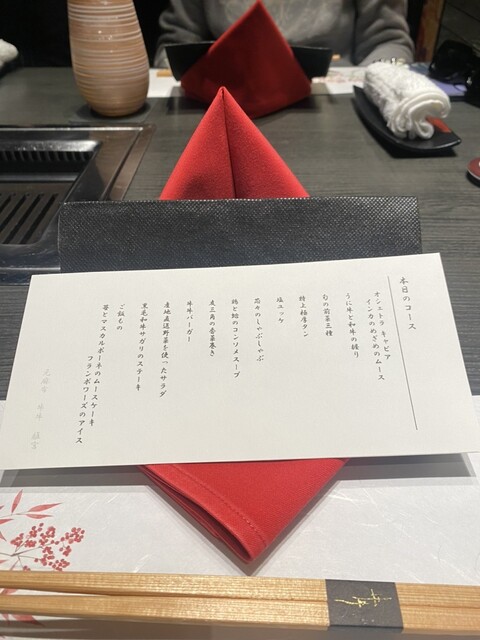 本日のコース
オシェトラ キャビア
インカのめざめのムース
うに牛と和牛の握り
旬の前菜三種
特上極厚タン
塩ユッケ
芯々のしゃぶしゃぶ
鶏と鮑のコンソメスープ
友三角の香草巻き
牛牛バーガー
産地直送野菜を使ったサラダ
黒毛和牛サガリのステーキ
ご飯もの
苺とマスカルポーネのムースケーキ
フランボワーズのアイス